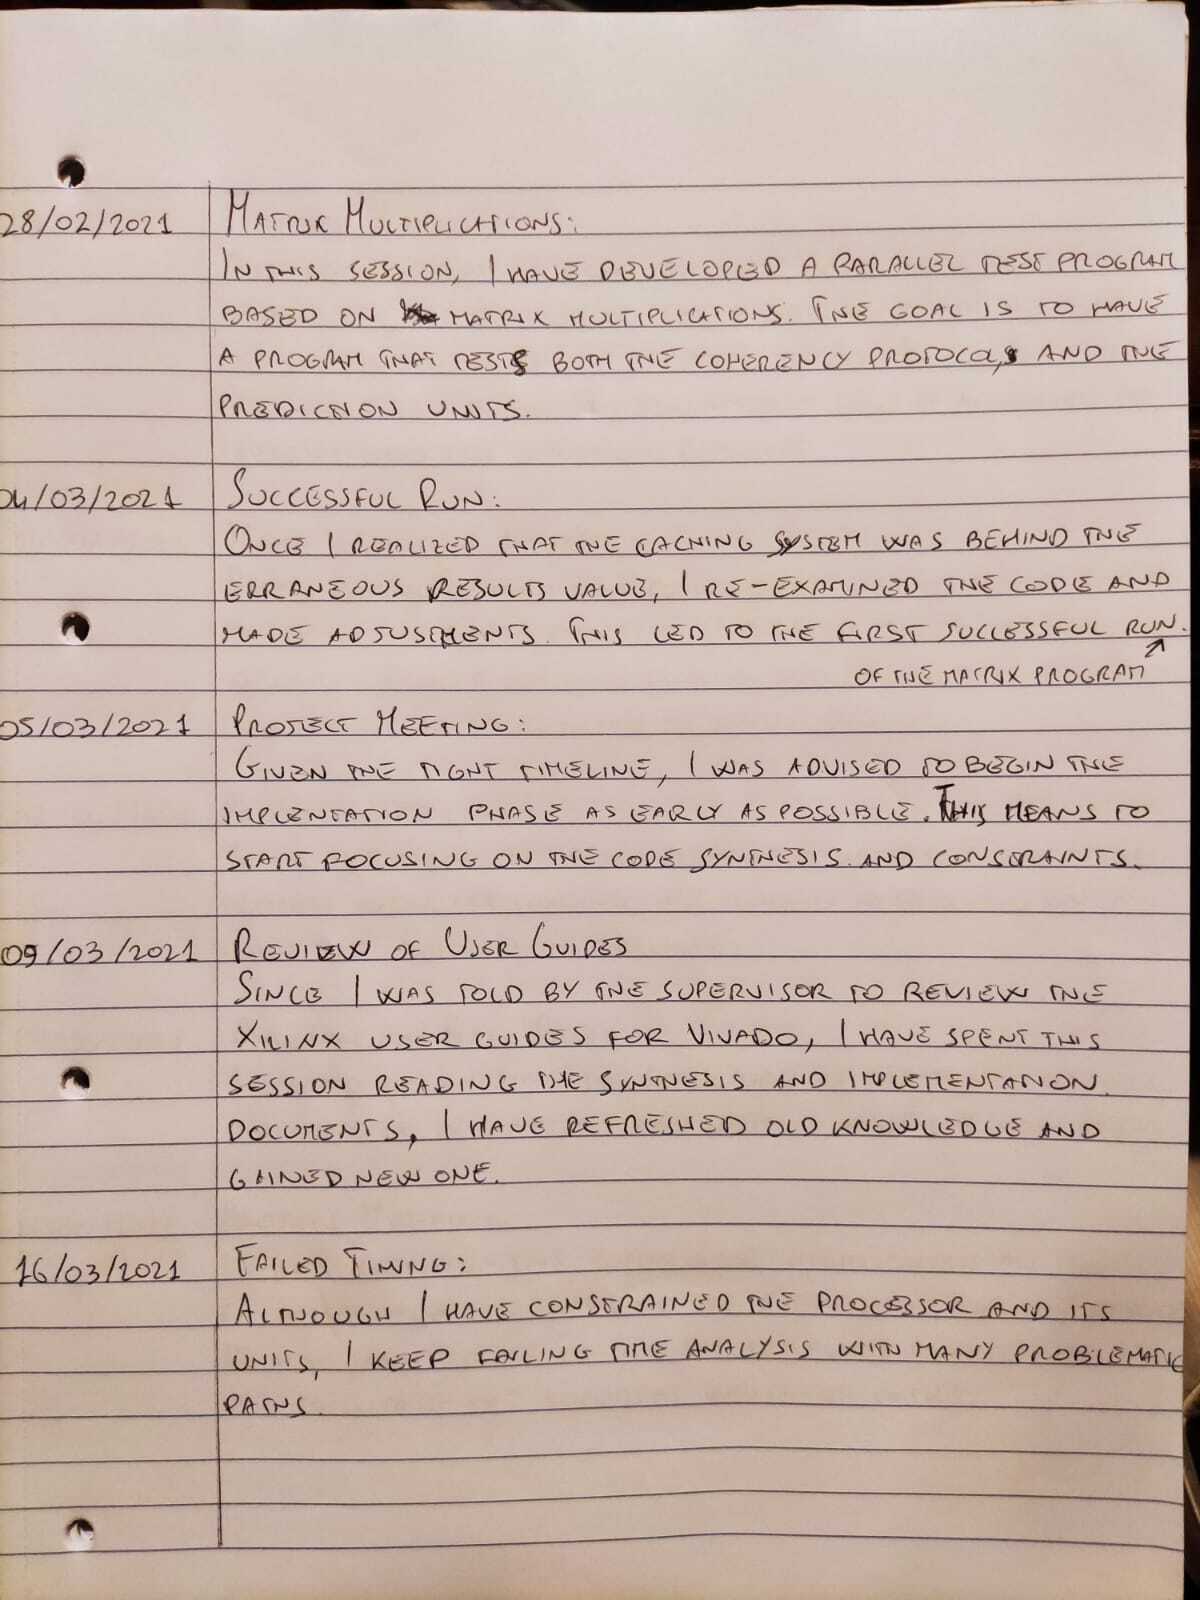 28/02/2021 MATRIX MULTIPLICATIONS:
IN THIS SESSION, I HAVE DEVELOPED A PARALLEL TEST PROGRAM
BASED ON MATRIX MULTIPLICATIONS. THE GOAL IS TO HAVE
A PROGRAM THAT TESTS BOTH THE COHERENCY PROTOCOLS AND THE
PREDICTION UNITS.
04/03/2021 SUCCESSFUL RUN:
ONCE I REALIZED THAT THE CACHING SYSTEM WAS BEHIND THE
ERRANEOUS RESULTS VALUE, I RE-EXAMINED THE CODE AND
MADE ADJUSTMENTS. THIS LED TO THE FIRST SUCCESSFUL RUN.
OF THE MATRIX PROGRAM
05/03/2021 PROJECT MEETING:
GIVEN THE TIGHT TIMELINE, I WAS ADVISED TO BEGIN THE
IMPLENTATION PHASE AS EARLY AS POSSIBLE. THIS MEANS TO
START FOCUSING ON THE CODE SYNTHESIS AND CONSTRAINTS.
09/03/2021 REVIEW OF USER GUIDES
SINCE I WAS TOLD BY THE SUPERVISOR TO REVIEW THE
XILINX USER GUIDES FOR VIVADO, I HAVE SPENT THIS
SESSION READING THE SYNTHESIS AND IMPLEMENTATION
DOCUMENTS, I HAVE REFRESHED OLD KNOWLEDGE AND
GAINED NEW ONE.
16/03/2021 FAILED TIMING:
ALTHOUGH I HAVE CONSTRAINED THE PROCESSOR AND ITS
UNITS, I KEEP FAILING TIME ANALYSIS WITH MANY PROBLEMATIC
PATHS.